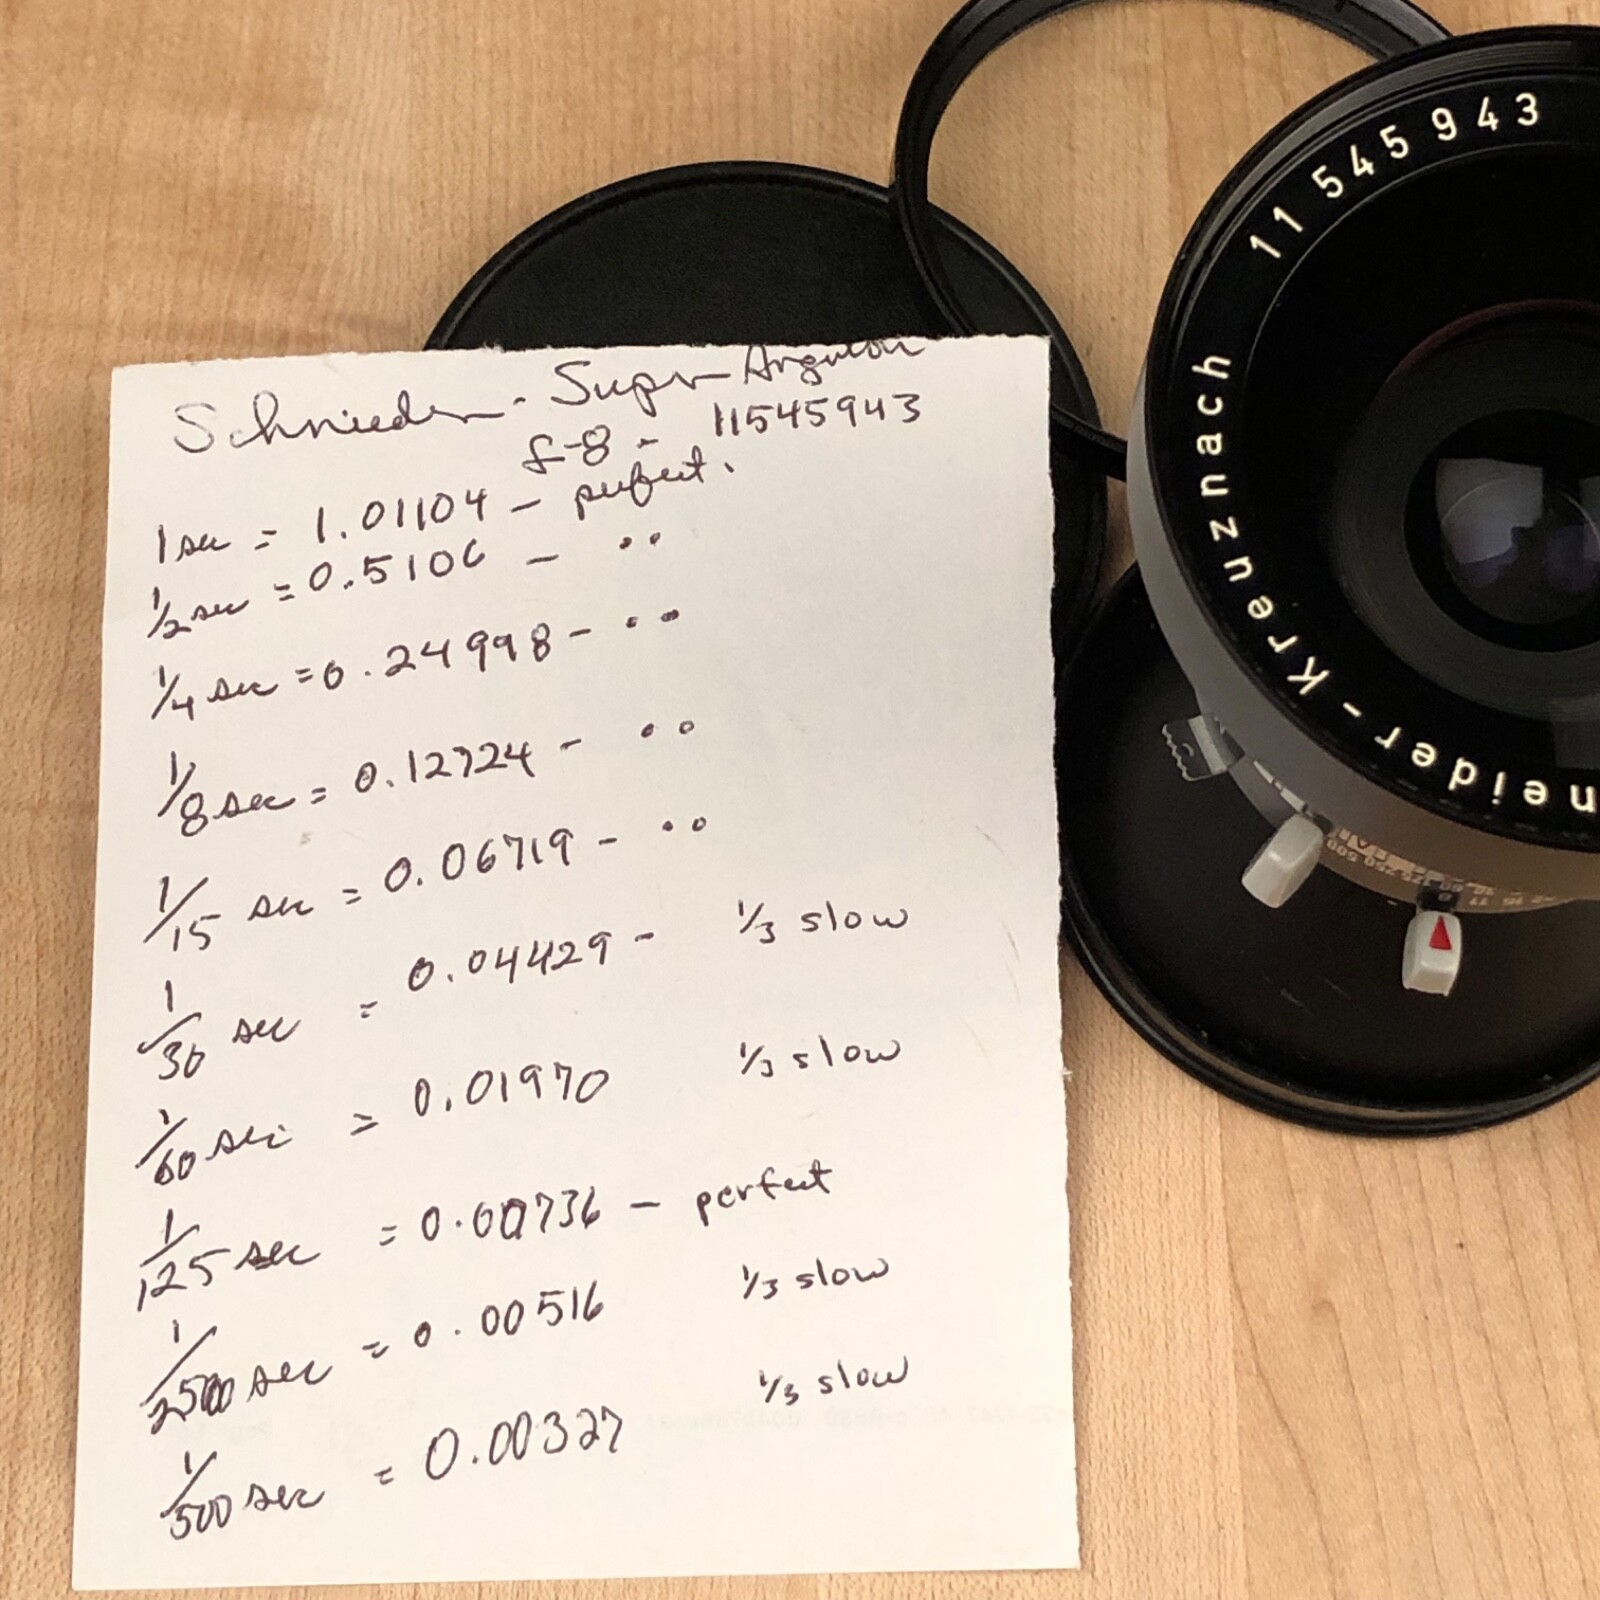 Schnieder - Super Angulon
f-8 - 11545943
1 sec = 1.01104 - perfect.
1/2 sec = 0.5106 - ..
1/4 sec = 0.24998 - ..
1/8 sec = 0.12724 - ..
1/15 sec = 0.06719 - ..
1/30 sec = 0.04429 - 1/3 slow
1/60 sec = 0.01970 1/3 slow
1/125 sec = 0.00736 - perfect
1/250 sec = 0.00516 1/3 slow
1/500 sec = 0.00327 1/3 slow
neider-Kreuznach 11 545 943